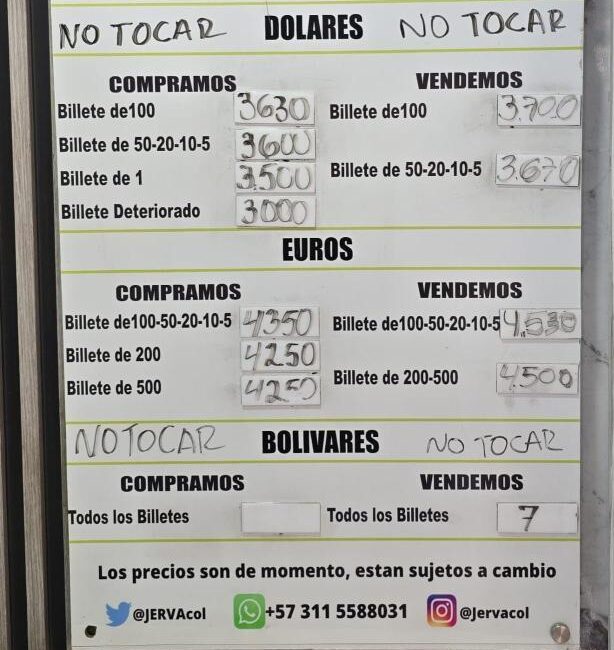 NO TOCAR DOLARES NO TOCAR
COMPRAMOS VENDEMOS
Billete de100 3630 Billete de100 3.700
Billete de 50-20-10-5 3600
Billete de 50-20-10-5 3.670
Billete de 1 3.500
Billete Deteriorado 3000
EUROS
COMPRAMOS VENDEMOS
Billete de100-50-20-10-5 4350 Billete de100-50-20-10-5 4.530
Billete de 200 4250
Billete de 200-500 4.500
Billete de 500 4250
NO TOCAR BOLIVARES NO TOCAR
COMPRAMOS VENDEMOS
Todos los Billetes Todos los Billetes 7
Los precios son de momento, estan sujetos a cambio
@JERVAcol +57 311 5588031 @Jervacol